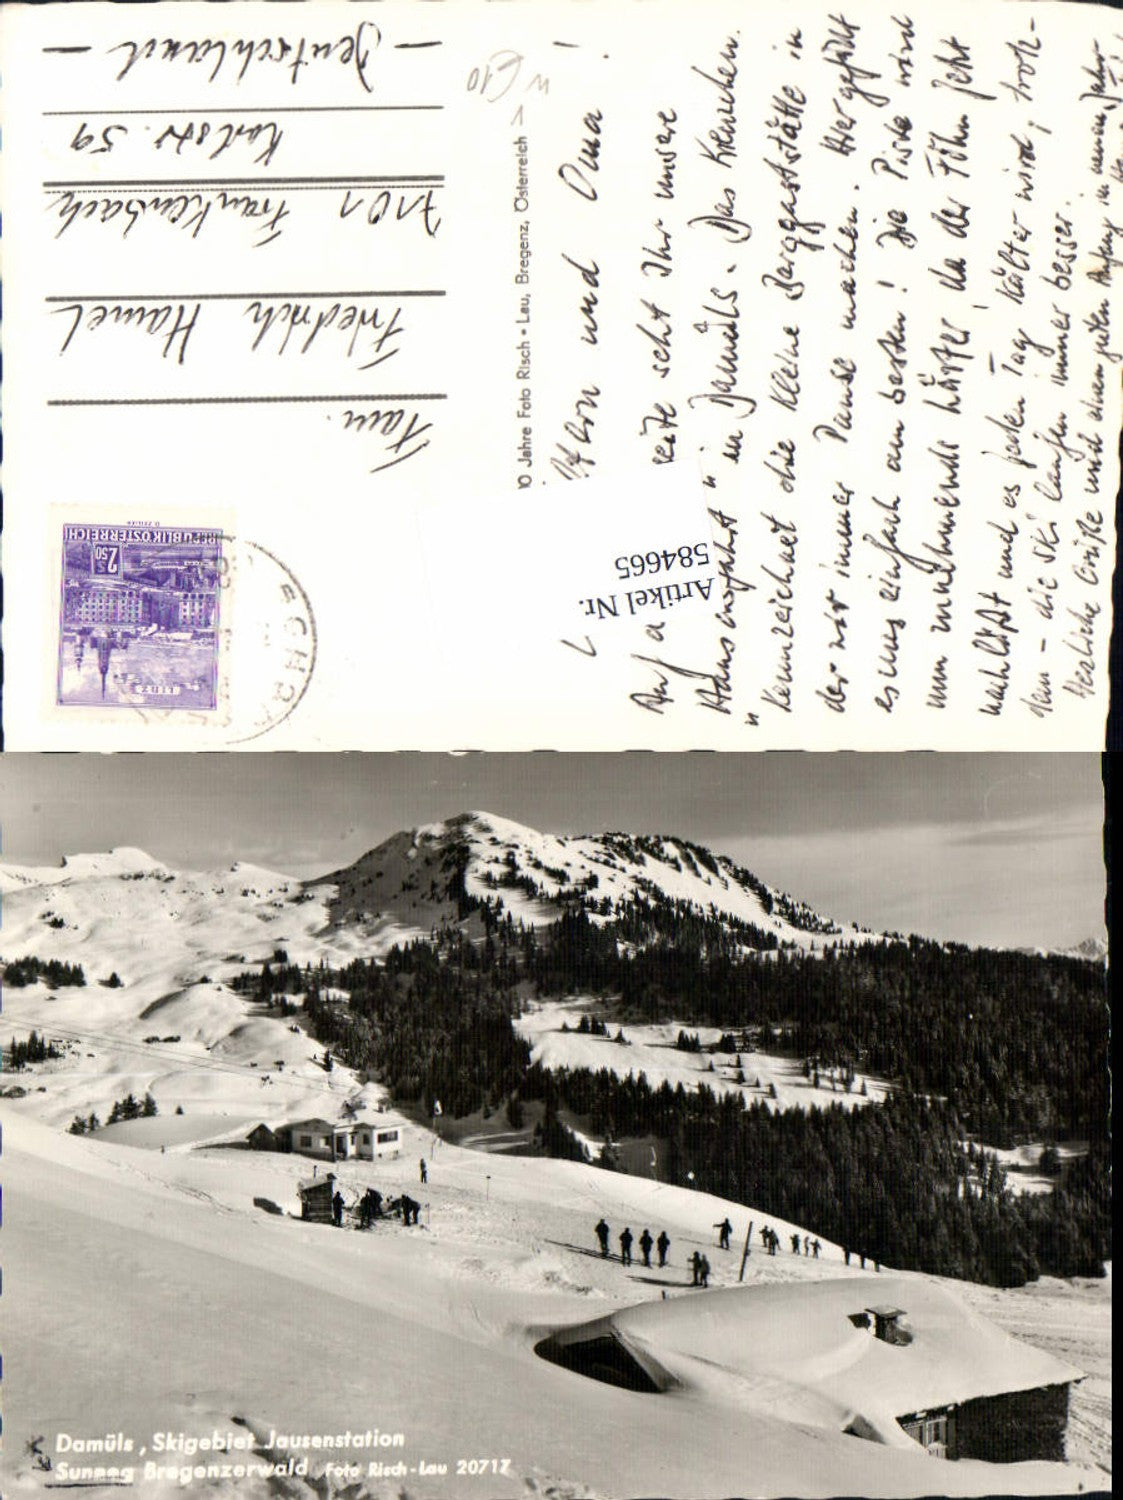 Fam.
Friedrich Hamel
7101 Frankenbach
Karlstr. 59
— Deutschland —
0 Jahre Foto Risch - Lau, Bregenz, Österreich
REPUBLIK ÖSTERREICH
2.50
LINZ
Artikel Nr.
584665
L Eltern und Oma !
Auf a seite seht Ihr unsere
"Hausinsfahrt" in Damüls. Das Kreuzchen
kennzeichnet die kleine Berggaststätte in
der wir immer Pause machen. Hier gefällt
es uns einfach am besten! Die Piste wird
nun zunehmends härter da der Föhn jetzt
nachläßt und es jeden Tag kälter wird, trotz-
dem - die Ski laufen immer besser.
Herzliche Grüße und einen guten Anfang im neuen Jahr
Damüls, Skigebiet Jausenstation
Sunneg Bregenzerwald Foto Risch-Lau 20717